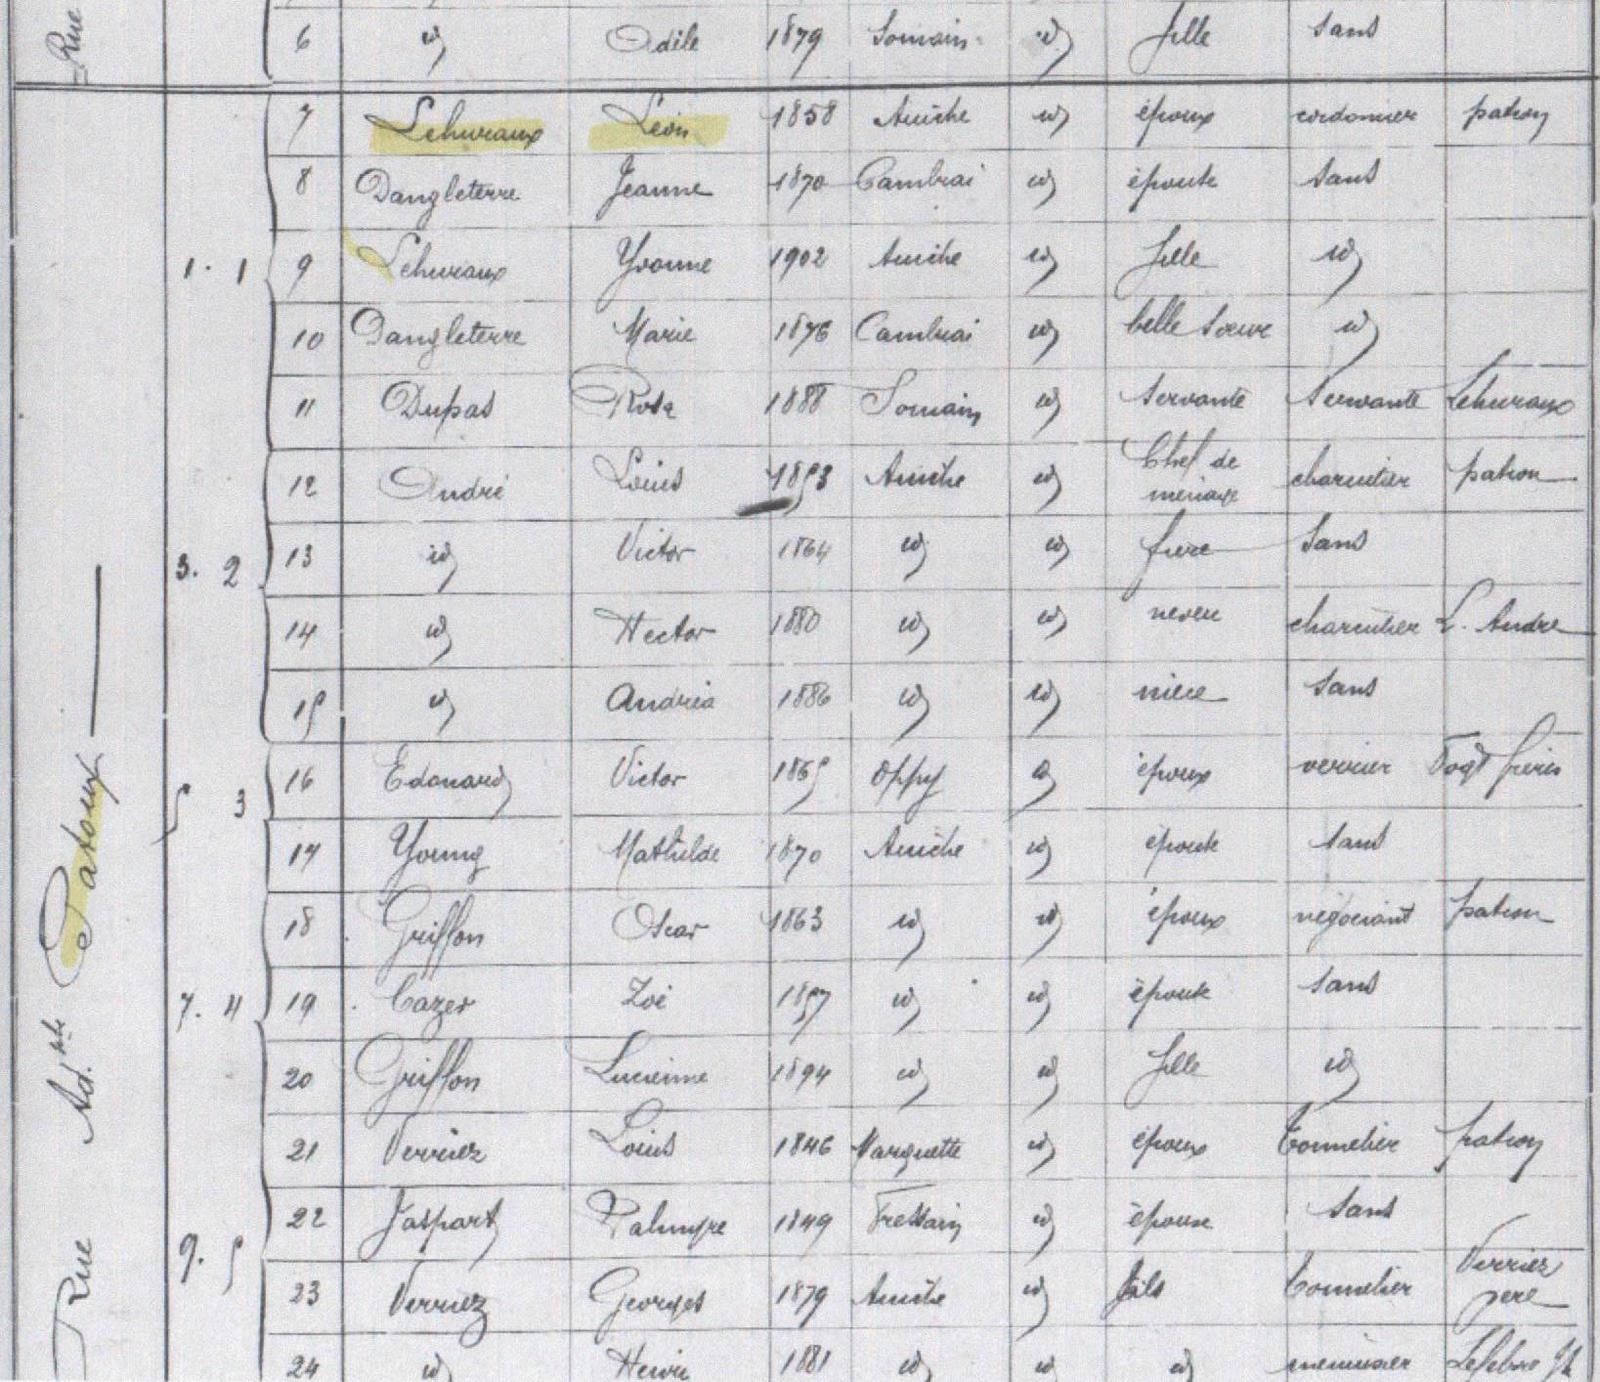 Rue
6 id Odile 1879 Somain id fille sans
7 Lehuraux Léon 1858 Aniche id époux cordonnier patron
8 Dangleterre Jeanne 1870 Cambrai id épouse sans
1. 1 9 Lehuraux Yvonne 1902 Aniche id fille id
10 Dangleterre Marie 1876 Cambrai id belle soeur id
11 Dupas Rosa 1888 Somain id servante Servante Lehuraux
12 André Louis 1853 Aniche id Chef de ménage charcutier patron
3. 2 13 id Victor 1864 id id frère Sans
14 id Hector 1880 id id neveu charcutier L. André
15 id Andréa 1886 id id nièce sans
5 3 16 Edouard Victor 1865 Oppy époux verrier frères
17 Young Mathilde 1870 Aniche id épouse sans
18 Griffon Oscar 1863 id id époux négociant patron
7. 4 19 Cazer Zoé 1857 id id épouse sans
20 Griffon Lucienne 1894 id id fille id
21 Verriez Louis 1846 Marquette id époux Tonnelier patron
22 Jaspart Palmyre 1849 Fressain id épouse sans
9. 5 23 Verriez Georges 1879 Aniche id fils Tonnelier Verriez père
24 id Henri 1881 id id id menuisier Lefebvre
Rue Patoux